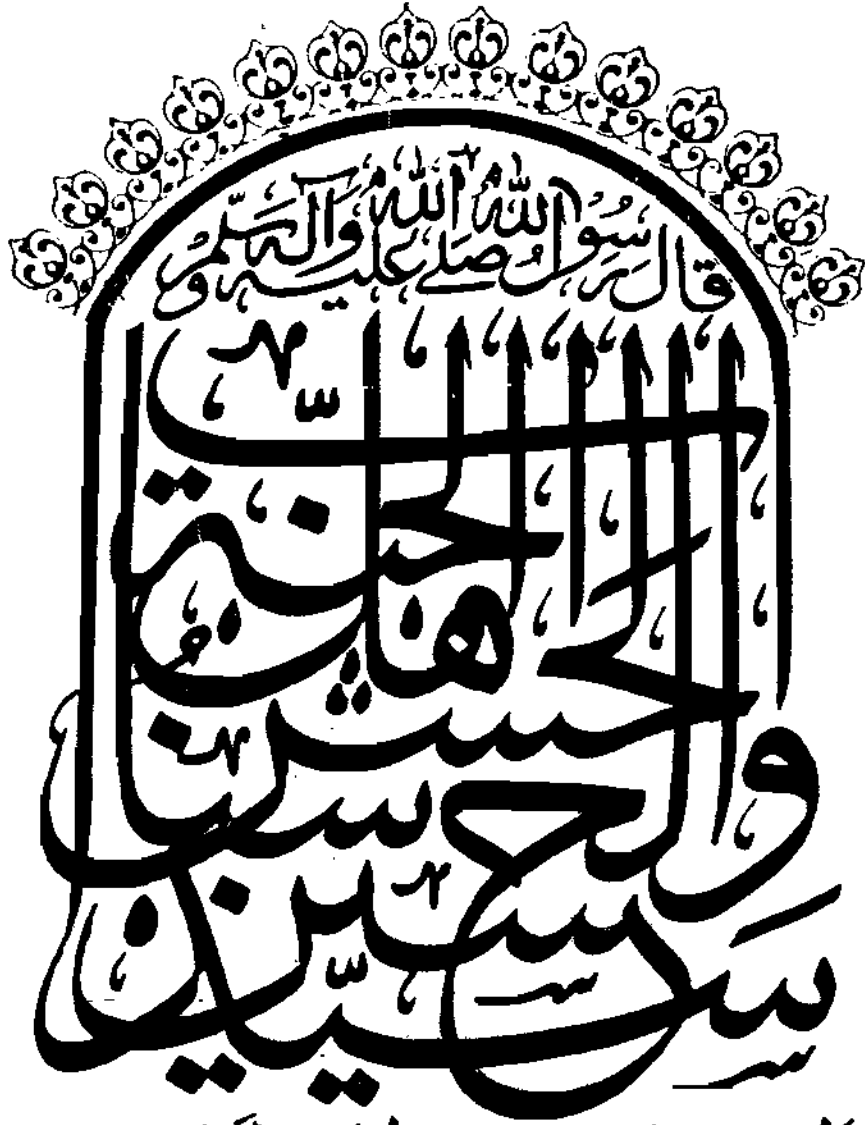 قال رسول الله صلى الله عليه وآله وسلم
الحسن والحسين سيدا شباب أهل الجنة